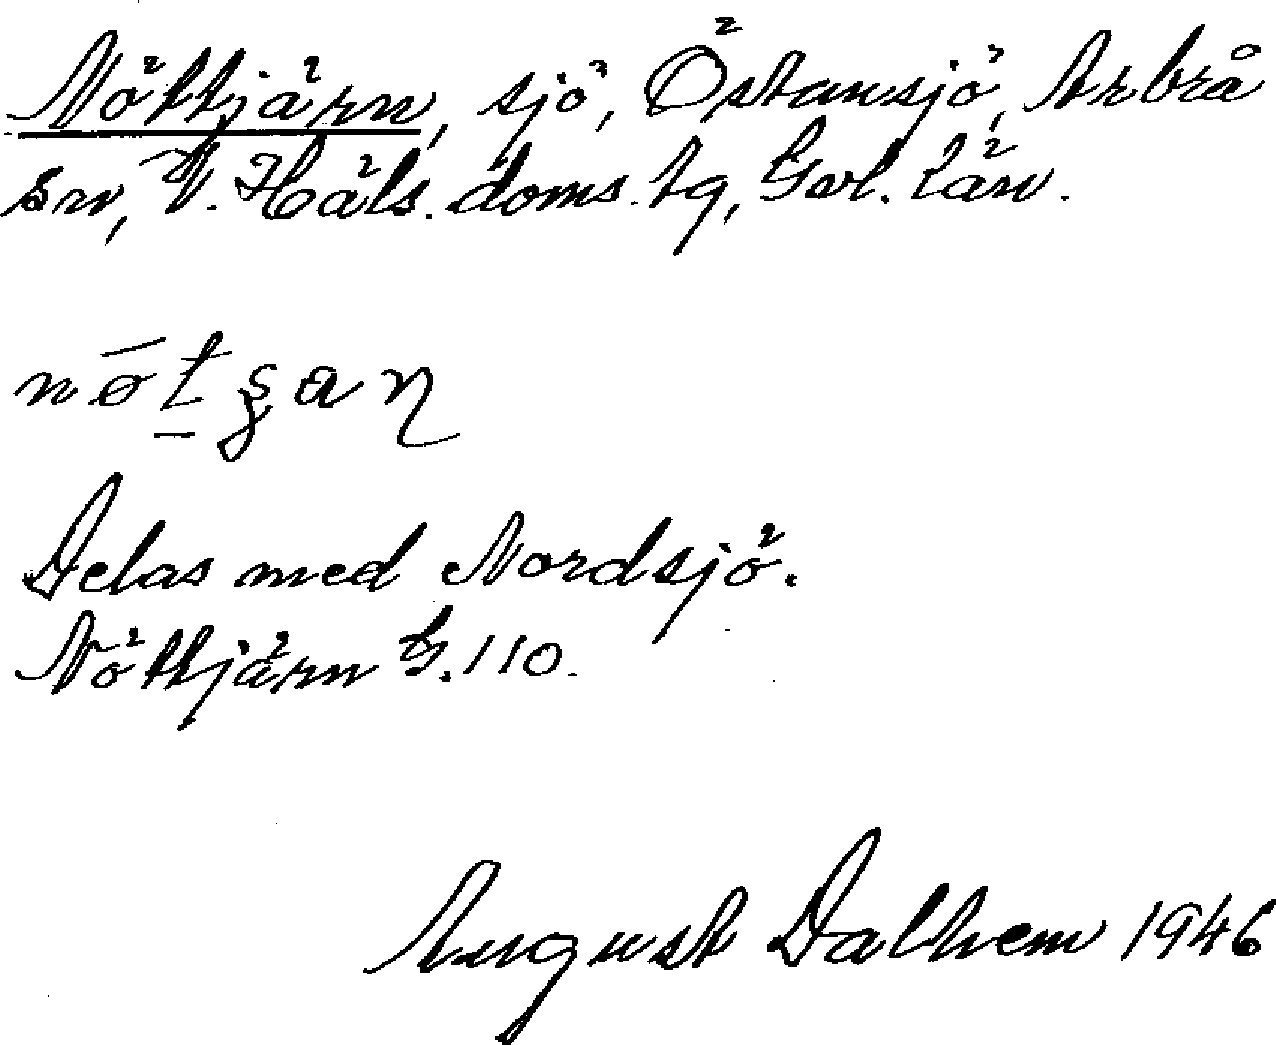 Nöttjärn, sjö, Östansjö, Arbrå
sn, V. Häls. doms. tg, Gvl. län.
nø̄t̠ʂaɳ
Delas med Nordsjö.
Nöttjärn G. 110.
August Dalhem 1946